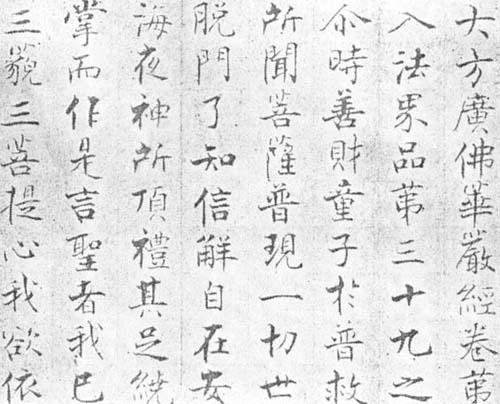 大方廣佛華嚴經卷第
入法界品第三十九之
尒時善財童子於普救
所聞菩薩普現一切世
脱門了知信解自在安
海夜神所頂禮其足繞
掌而作是言聖者我已
三藐三菩提心我欲依